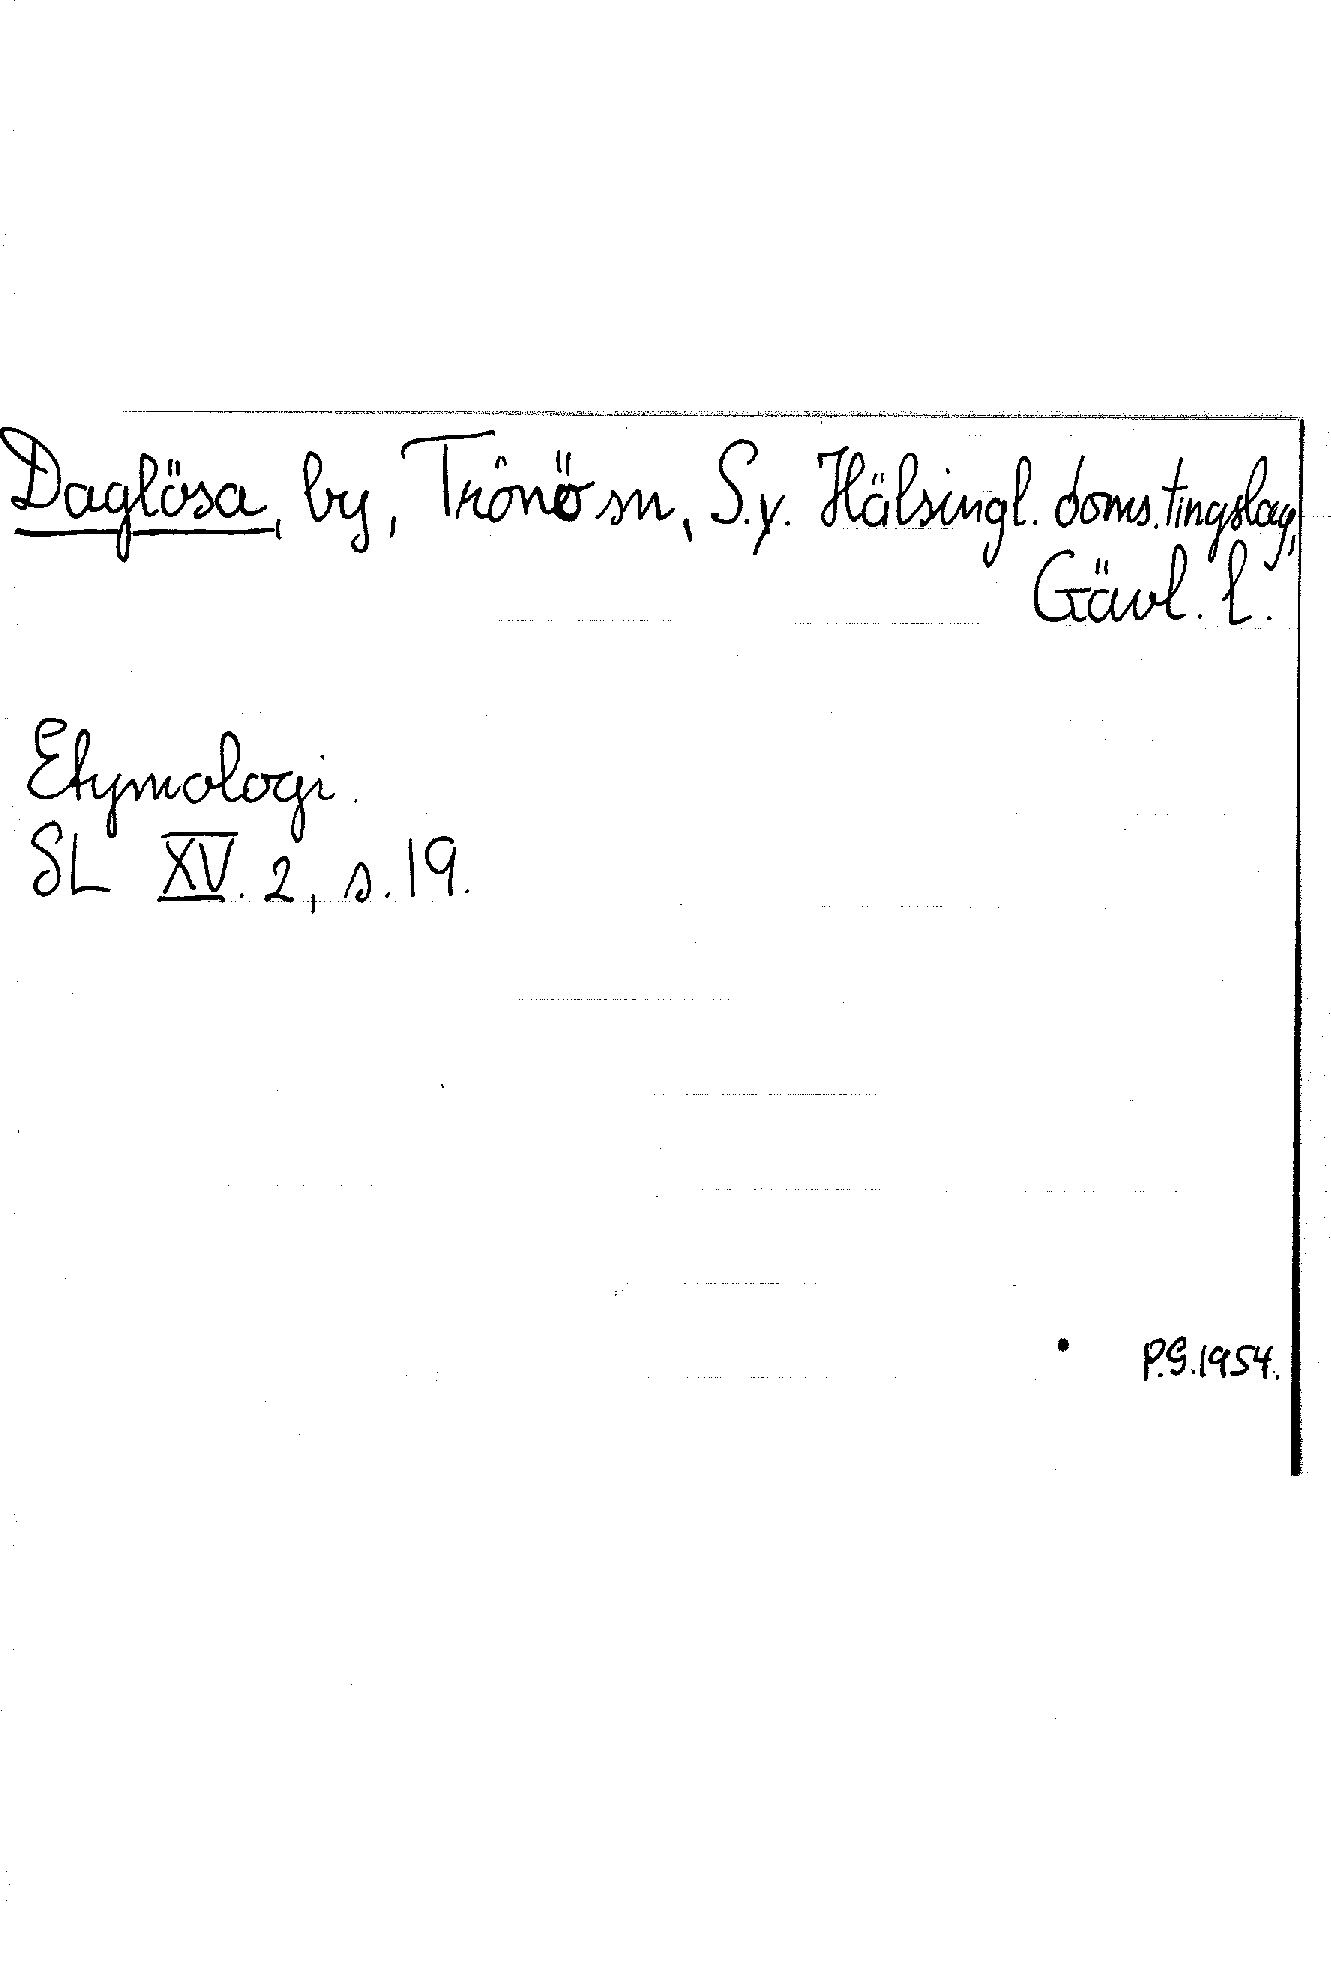 Daglösa, by, Trönö sn, S.y. Hälsingl. doms.tingslag,
Gävl. l.
Etymologi.
SL XV. 2, s. 19.
P.G.1954.